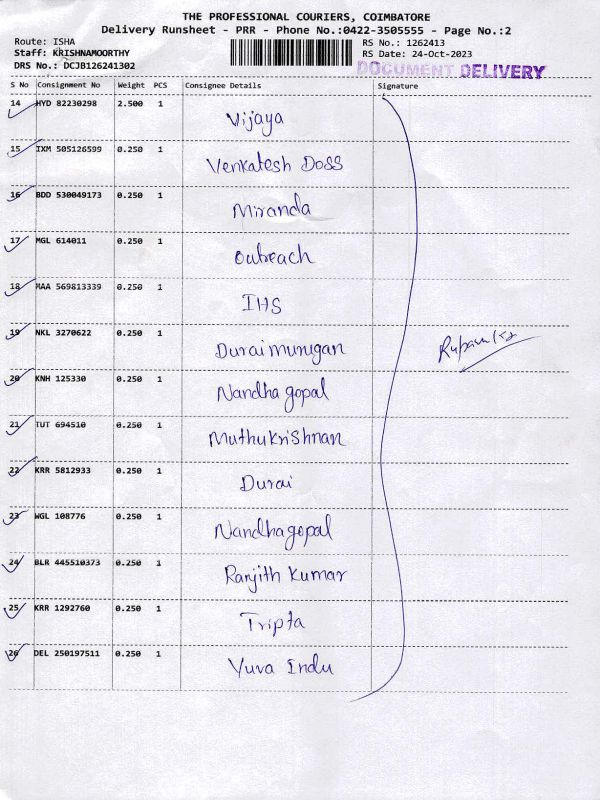 THE PROFESSIONAL COURIERS, COIMBATORE
Delivery Runsheet - PRR - Phone No.:0422-3505555 - Page No.:2
Route: ISHA RS No.: 1262413
Staff: KRISHNAMOORTHY RS Date: 24-Oct-2023
DRS No.: DCJB126241302 DOCUMENT DELIVERY
S No Consignment No Weight PCS Consignee Details Signature
14 HYD 82230298 2.500 1 Vijaya
15 IXM 505126599 0.250 1 Venkatesh Doss
16 BDD 530049173 0.250 1 Miranda
17 MGL 614011 0.250 1 Outreach
18 MAA 569813339 0.250 1 IHS
19 NKL 3270622 0.250 1 Duraimurugan
20 KNH 125330 0.250 1 Nandha gopal
21 TUT 694510 0.250 1 Muthukrishnan
22 KRR 5812933 0.250 1 Durai
23 WGL 108776 0.250 1 Nandhagopal
24 BLR 445510373 0.250 1 Ranjith Kumar
25 KRR 1292760 0.250 1 Tripta
26 DEL 250197511 0.250 1 Yuva Indu